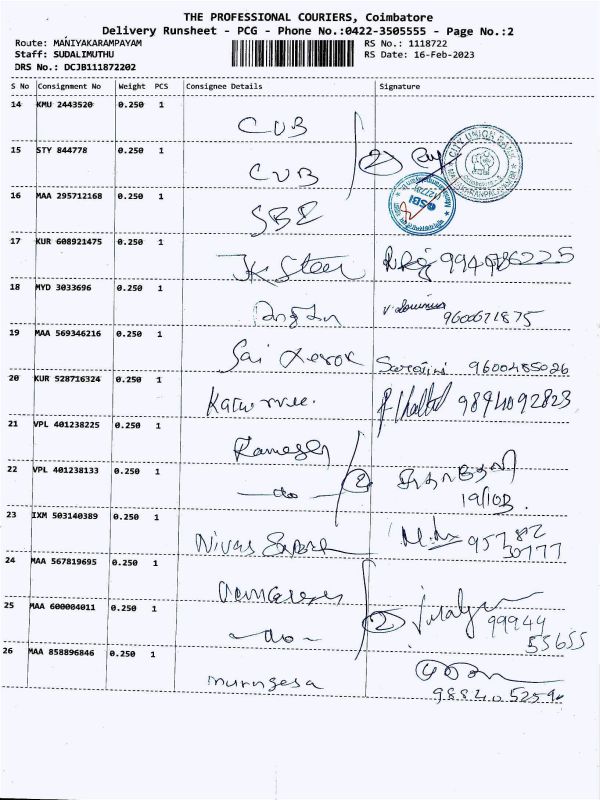 THE PROFESSIONAL COURIERS, Coimbatore
Delivery Runsheet - PCG - Phone No.:0422-3505555 - Page No.:2
Route: MANIYAKARAMPAYAM RS No.: 1118722
Staff: SUDALIMUTHU RS Date: 16-Feb-2023
DRS No.: DCJB111872202
S No Consignment No Weight PCS Consignee Details Signature
14 KMU 2443520 0.250 1 CUB
15 STY 844778 0.250 1 CUB 2
CITY UNION BANK
16 MAA 295712168 0.250 1 SBI
SBI
17 KUR 608921475 0.250 1 JK Steel
18 MYD 3033696 0.250 1 9600671875
19 MAA 569346216 0.250 1 Sai Xerox Sarojini 9600485026
20 KUR 528716324 0.250 1 9894092823
21 VPL 401238225 0.250 1 Ramesh
22 VPL 401238133 0.250 1 -do- 2
23 IXM 503140389 0.250 1 Nivas 95782
30777
24 MAA 567819695 0.250 1
25 MAA 600004011 0.250 1 -do- 2 99944
55655
26 MAA 858896846 0.250 1 murugesa